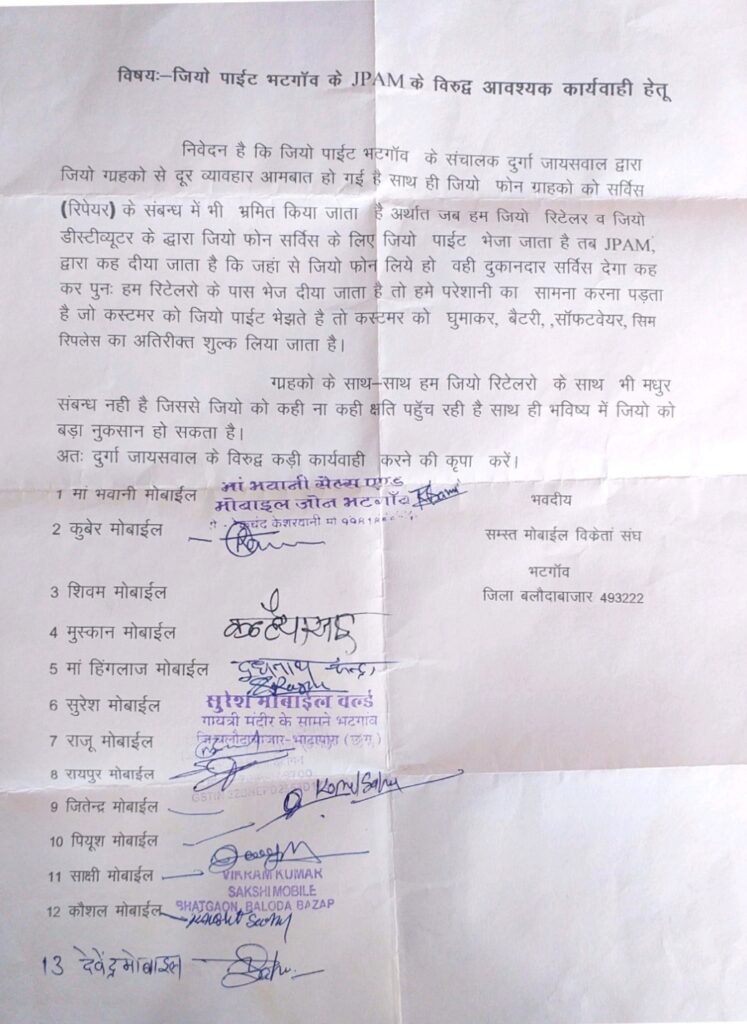 विषयः–जियो पाईट भटगॉव के JPAM के विरुद्व आवश्यक कार्यवाही हेतू
निवेदन है कि जियो पाईट भटगॉव के संचालक दुर्गा जायसवाल द्वारा
जियो ग्राहको से दूर व्यावहार आमबात हो गई है साथ ही जियो फोन ग्राहको को सर्विस
(रिपेयर) के संबन्ध में भी भ्रमित किया जाता है अर्थात जब हम जियो रिटेलर व जियो
डीस्टीव्यूटर के द्धारा जियो फोन सर्विस के लिए जियो पाईट भेजा जाता है तब JPAM,
द्वारा कह दीया जाता है कि जहां से जियो फोन लिये हो वही दुकानदार सर्विस देगा कह
कर पुनः हम रिटेलरो के पास भेज दीया जाता है तो हमे परेशानी का सामना करना पड़ता
है जो कस्टमर को जियो पाईट भेझते है तो कस्टमर को घुमाकर, बैटरी, ,सॉफटवेयर, सिम
रिपलेस का अतिरीक्त शुल्क लिया जाता है।
ग्राहको के साथ–साथ हम जियो रिटेलरो के साथ भी मधुर
संबन्ध नही है जिससे जियो को कही ना कही क्षति पहुॅच रही है साथ ही भविष्य में जियो को
बड़ा नुकसान हो सकता है।
अतः दुर्गा जायसवाल के विरुद्व कड़ी कार्यवाही करने की कृपा करें।
1 मां भवानी मोबाईल
मां भवानी सेल्स एण्ड
मोबाइल जोन भटगाँव
केशरवानी मो
भवदीय
2 कुबेर मोबाईल
सम्स्त मोबाईल विक्रेतां संघ
भटगॉव
3 शिवम मोबाईल
जिला बलौदाबाजार 493222
4 मुस्कान मोबाईल
5 मां हिंगलाज मोबाईल
दुधनाथ चन्द्रा
6 सुरेश मोबाईल
सुरेश मोबाईल वर्ल्ड
गायत्री मंदीर के सामने भटगांव
7 राजू मोबाईल
जि.बलौदाबाजार-भाटापारा (छ.ग.)
8 रायपुर मोबाईल
9 जितेन्द्र मोबाईल
Komal Sahu
10 पियूश मोबाईल
11 साक्षी मोबाईल
VIKRAM KUMAR
SAKSHI MOBILE
BHATGAON, BALODA BAZAP
12 कौशल मोबाईल
13 देवेंद्र मोबाइल